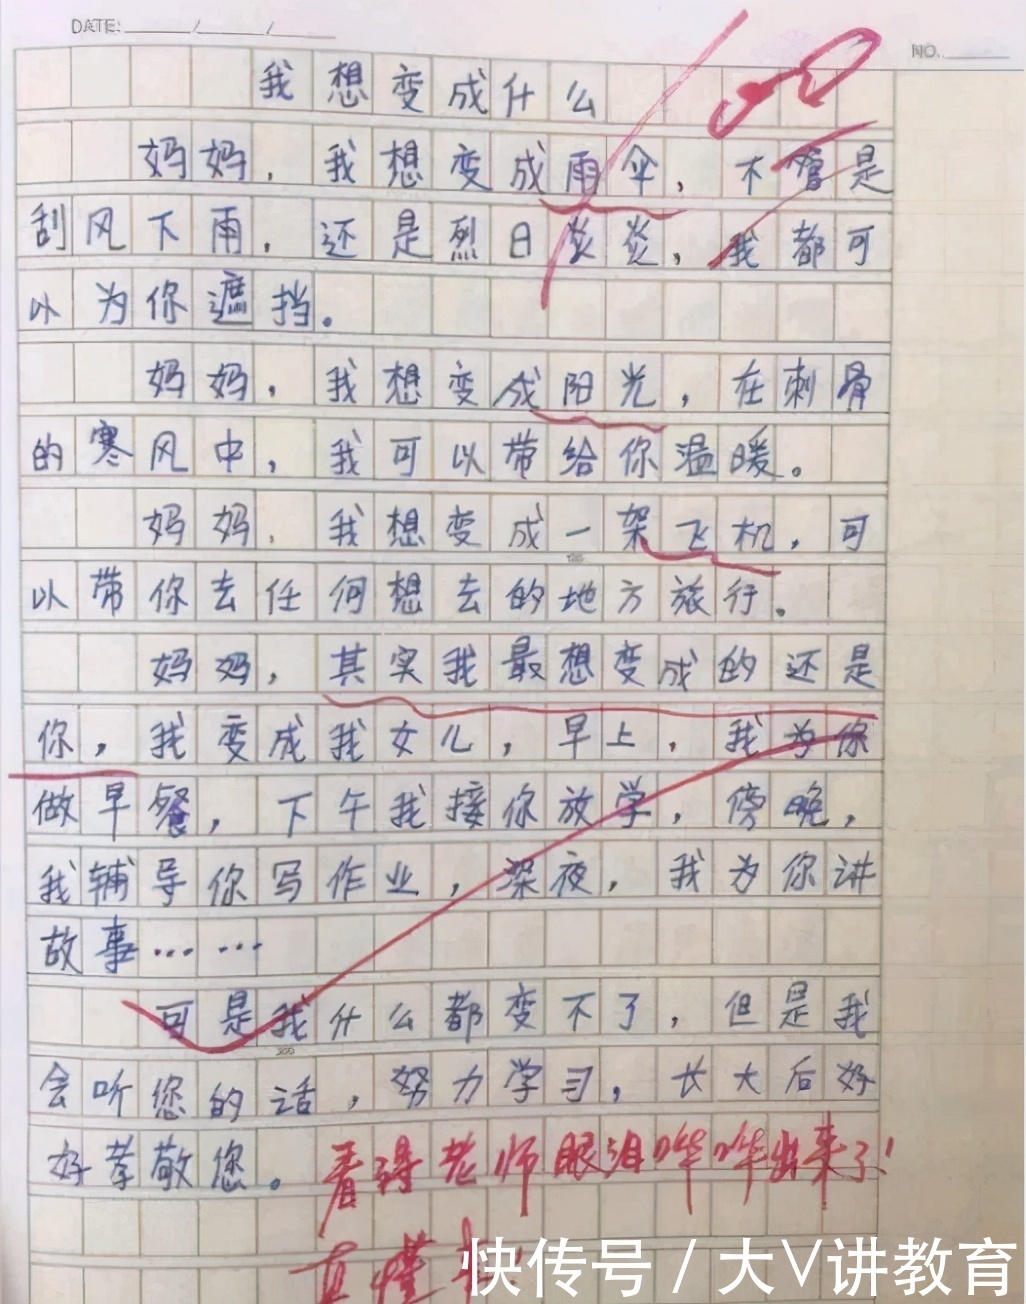 DATE: / /
NO.
我想变成什么
100
妈妈，我想变成雨伞，不管是
刮风下雨，还是烈日炎炎，我都可
以为你遮挡。
妈妈，我想变成阳光，在刺骨
的寒风中，我可以带给你温暖。
妈妈，我想变成一架飞机，可
以带你去任何想去的地方旅行。
妈妈，其实我最想变成的还是
你，我变成我女儿，早上，我为你
做早餐，下午我接你放学，傍晚，
我辅导你写作业，深夜，我为你讲
故事……
可是我什么都变不了，但是我
会听您的话，努力学习，长大后好
好孝敬您。看得老师眼泪哗哗出来了！
真懂事！
快传号 / 大V讲教育